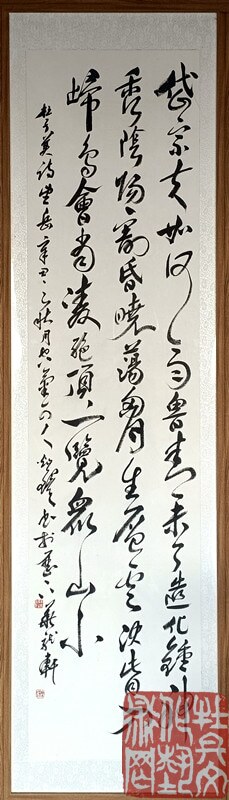 岱宗夫如何齊魯青未了造化鍾神
秀陰陽割昏曉蕩胸生層雲決眥入
歸鳥會當凌絶頂一覽衆山小
杜子美詩望岳辛丑之秋月 書於 軒